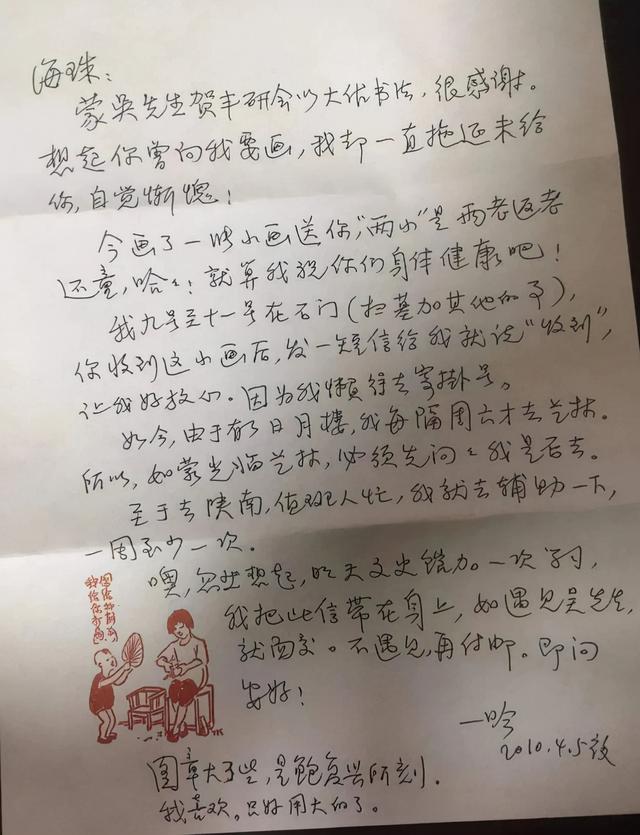 海珠：
蒙吴先生贺丰研会以大作书法，很感谢。
想起你曾向我要画，我却一直拖延未给
你，自觉惭愧！
今画了一张小画送你，“两小”是两老返老
还童，哈哈！就算我祝你们身体健康吧！
我九号至十一号在石门（扫墓加其他的事），
你收到这小画后，发一短信给我就说“收到”，
让我好放心。因为我懒得去寄掛号。
如今，由于有了日月楼，我每隔周六才去艺林。
所以，如蒙光临艺林，必须先问问我是否去。
至于去陕南，值班人忙，我就去辅助一下，
一周至少一次。
噢，忽然想起，明天文史馆加一次学习，
我把此信带在身上，如遇见吴先生，
就面交。不遇见，再付邮。即问
安好！
一吟
2010.4.5夜
图章大了些，是鲍复兴所刻．
我喜欢。只好用大的了。